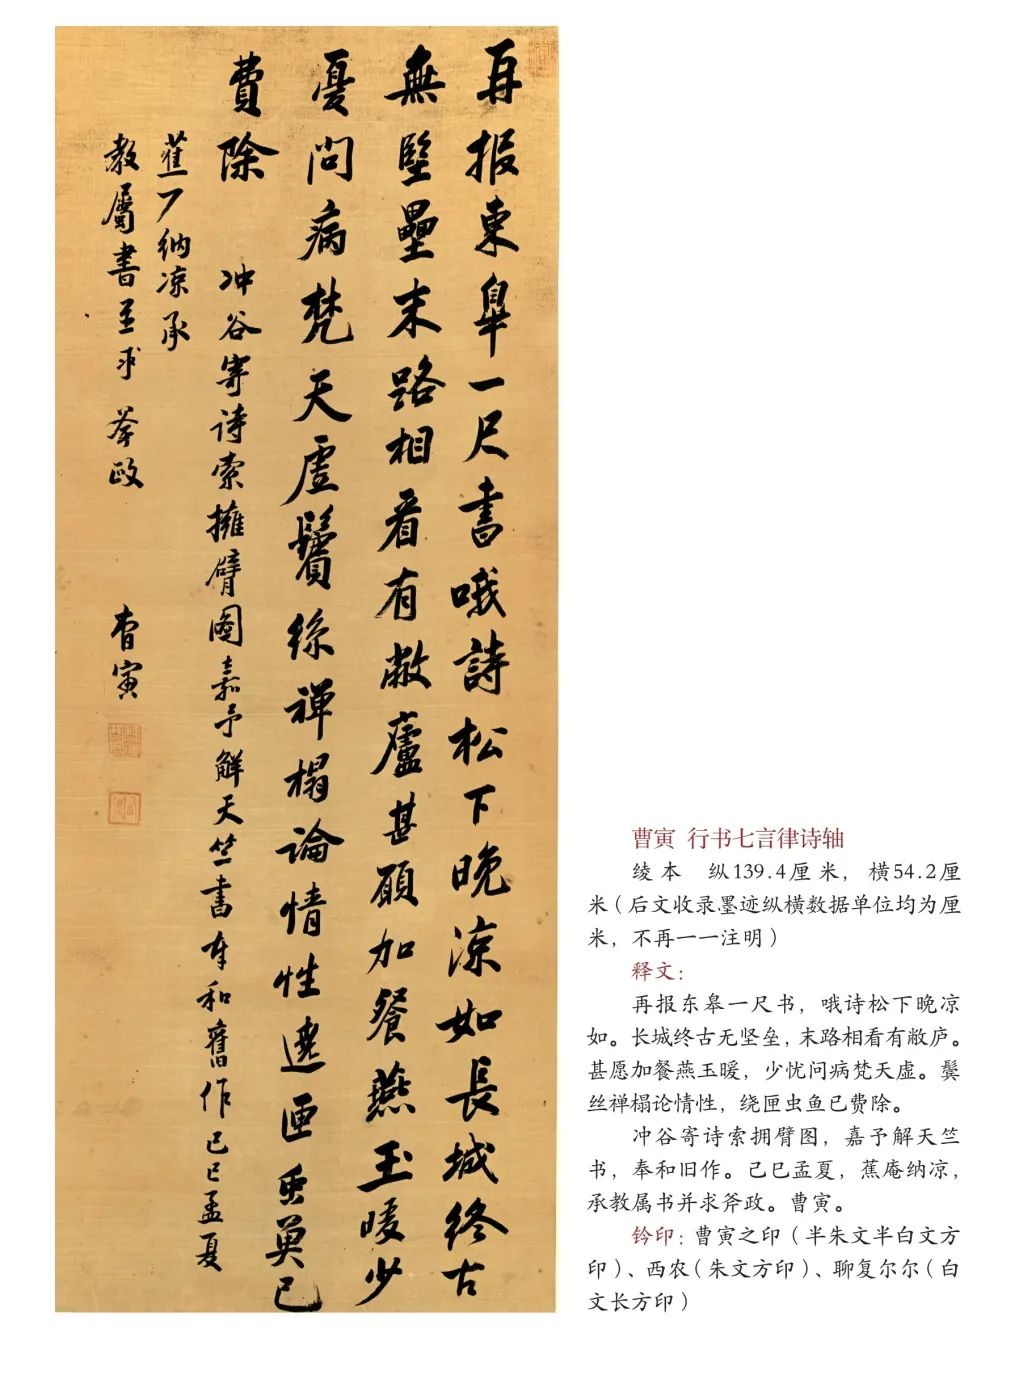 再报東皐一尺書哦詩松下晚涼如長城终古
無堅壘末路相看有敝廬甚願加餐燕玉暖少
憂問病梵天虚鬢絲禅榻論情性遶匣虫奠已
費除
冲谷寄诗索擁臂图嘉予解天竺書奉和舊作己巳孟夏
蕉纳凉承
教屬書並求 斧政
曹寅
曹寅 行书七言律诗轴
绫本 纵139.4厘米，横54.2厘
米（后文收录墨迹纵横数据单位均为厘
米，不再一一注明）
释文：
再报东皋一尺书，哦诗松下晚凉
如。长城终古无坚垒，末路相看有敝庐。
甚愿加餐燕玉暖，少忧问病梵天虚。鬓
丝禅榻论情性，绕匣虫鱼已费除。
冲谷寄诗索拥臂图，嘉予解天竺
书，奉和旧作。己巳孟夏，蕉庵纳凉，
承教属书并求斧政。曹寅。
钤印：曹寅之印（半朱文半白文方
印）、西农（朱文方印）、聊复尔尔（白
文长方印）